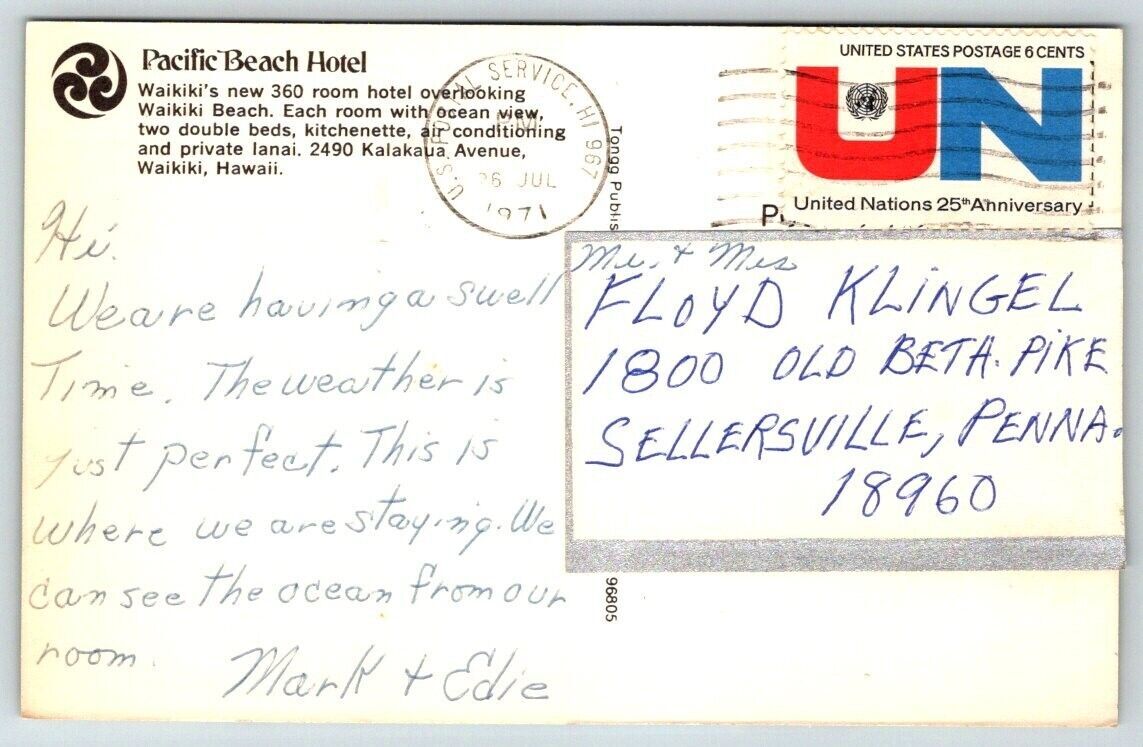 Pacific Beach Hotel
Waikiki's new 360 room hotel overlooking
Waikiki Beach. Each room with ocean view,
two double beds, kitchenette, air conditioning
and private lanai. 2490 Kalakaua Avenue,
Waikiki, Hawaii.
U.S. POSTAL SERVICE, HI 967
PM
26 JUL
1971
UNITED STATES POSTAGE 6 CENTS
UN
United Nations 25th Anniversary
Tongg Publis
96805
Hi.
We are having a swell
Time. The weather is
just perfect. This is
where we are staying. We
can see the ocean from our
room.
Mark + Edie
Mr. + Mrs
FLOYD KLINGEL
1800 OLD BETH. PIKE
SELLERSVILLE, PENNA.
18960